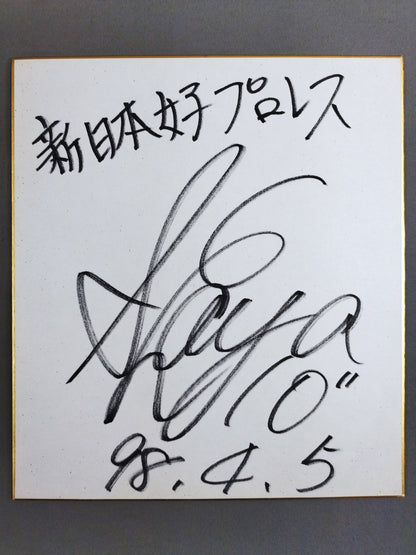 新日本女子プロレス
10"
98.4.5